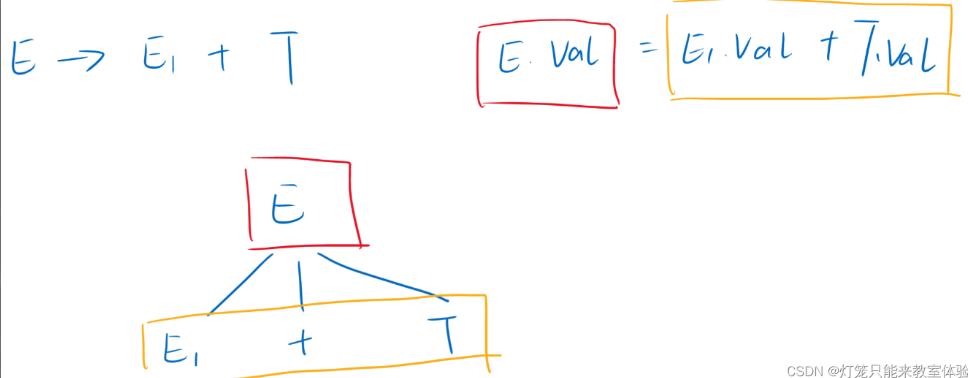 E → E₁ + T
E.Val = E₁.Val + T.Val
E
E₁ + T
CSDN @灯笼只能来教室体验